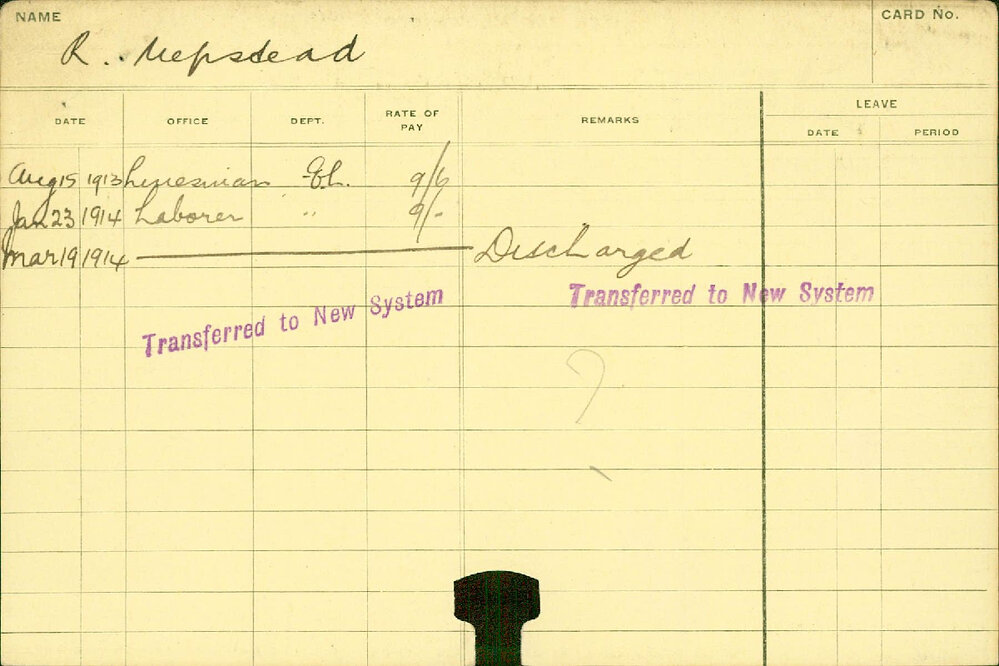 NAME
CARD No.
R. Mepstead
DATE OFFICE DEPT. RATE OF PAY REMARKS LEAVE
DATE PERIOD
Aug 15 1913 Linesman El. 9/6
Jan 23 1914 Laborer " 9/-
Mar 19 1914 Discharged
Transferred to New System
Transferred to New System
?